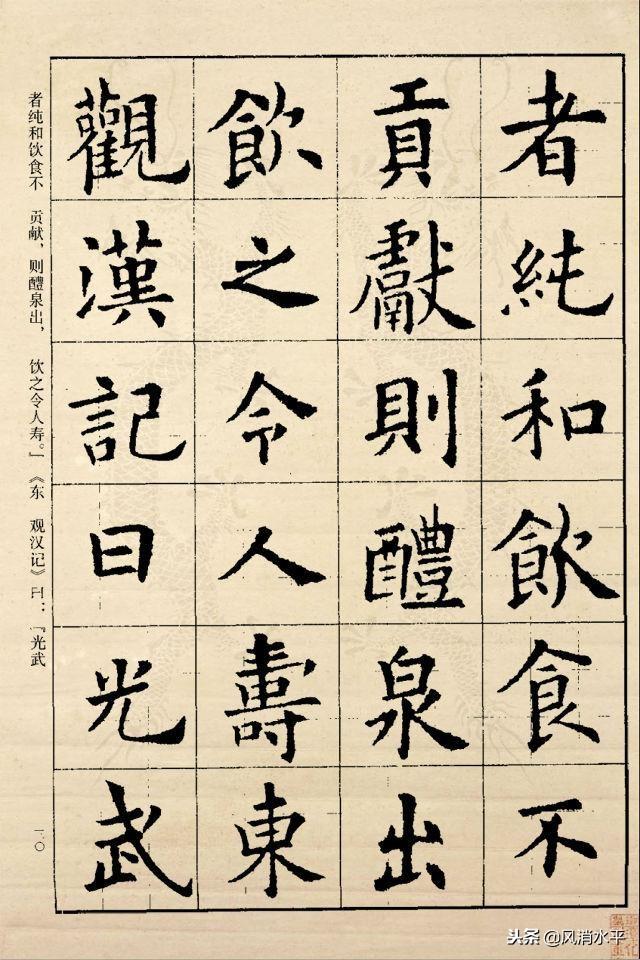 者純和飲食不
貢獻則醴泉出
飲之令人壽東
觀漢記曰光武
者纯和饮食不 贡献，则醴泉出， 饮之令人寿。」《东 观汉记》曰：「光武
一〇
头条 @风消水平